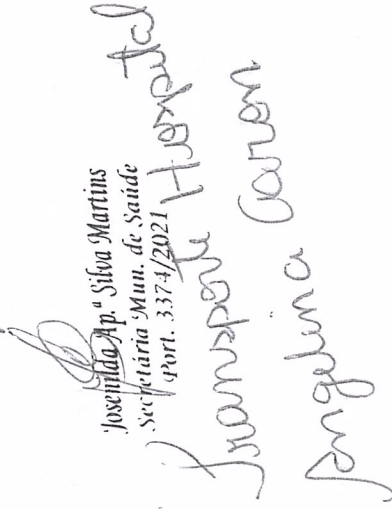 Josenilda Ap.ª Silva Martins
Secretária Mun. de Saúde
Port. 3374/2021
Transporte Hospital
Angelina Caron